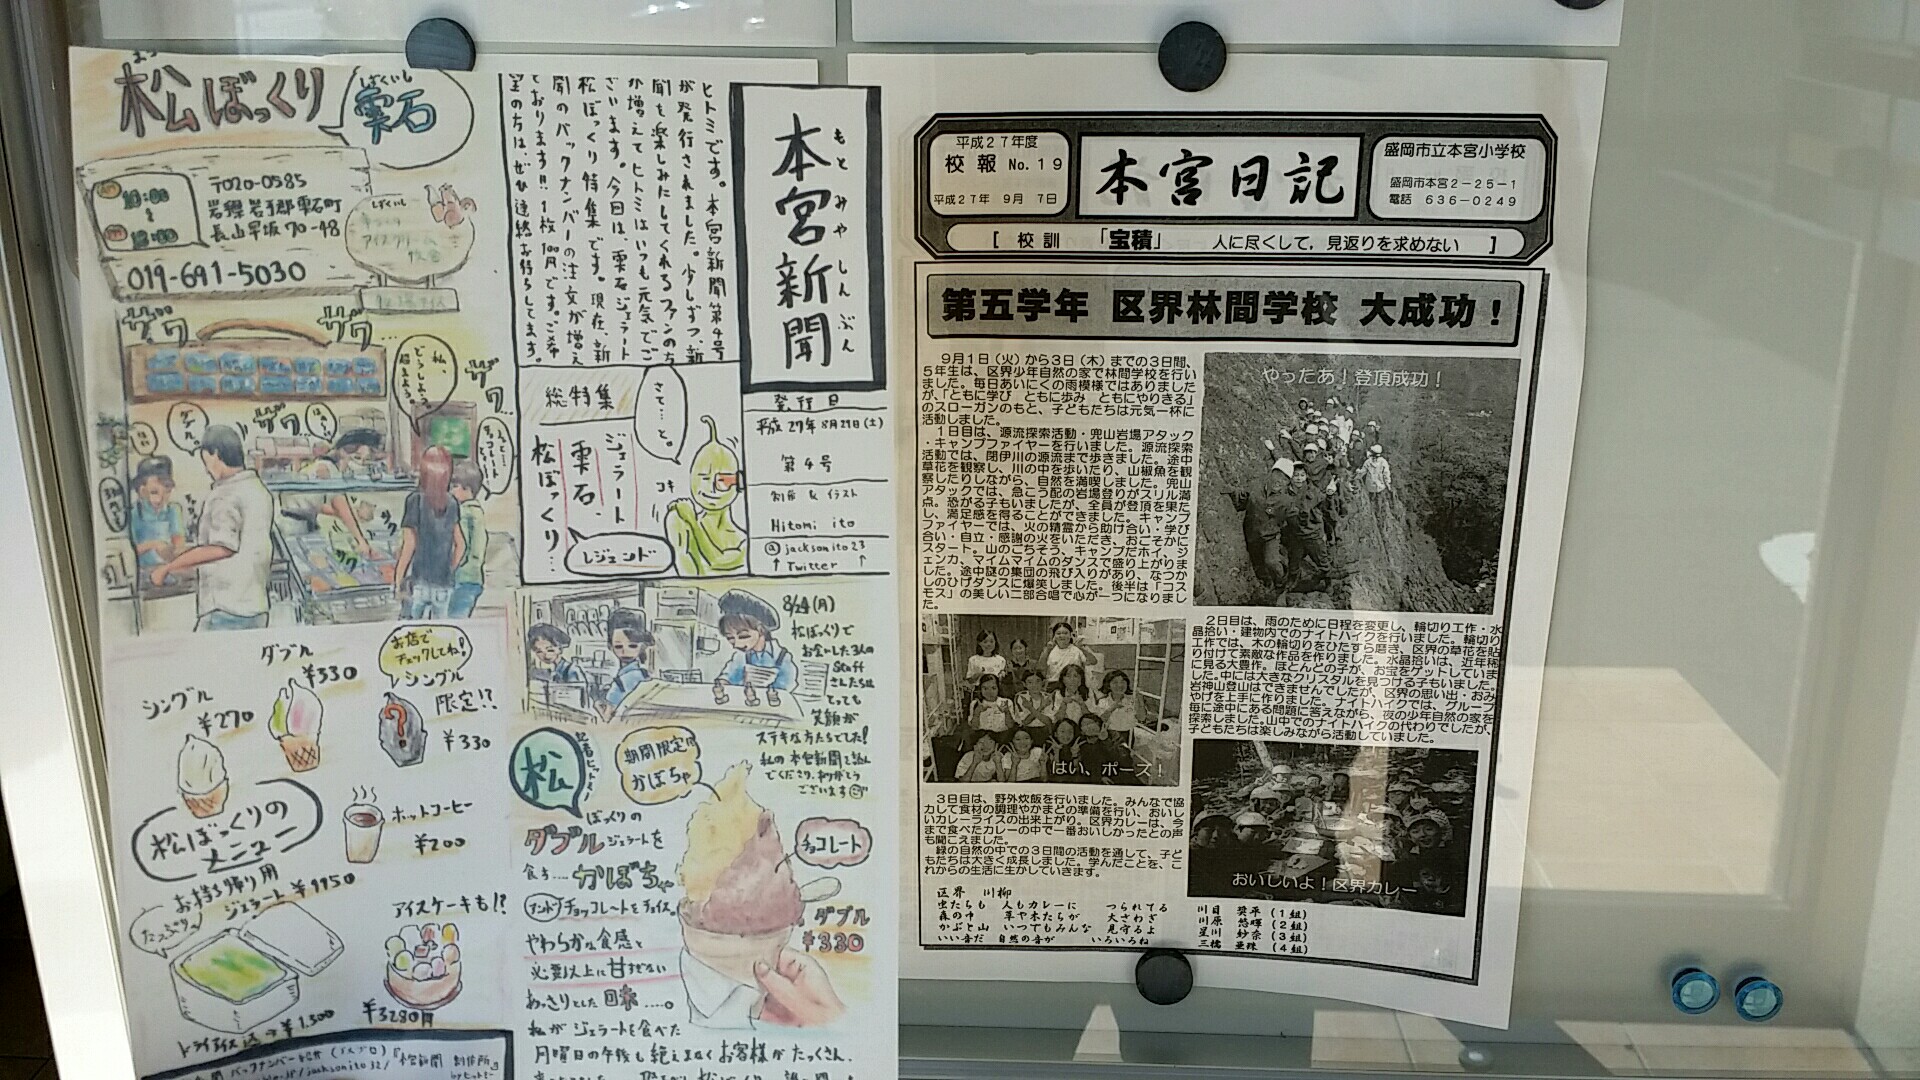 松ぼっくり
しずくいし
雫石
〒020-0585
岩手郡雫石町
長山早坂70-48
019-691-5030
ザワ
ザワ
ザワ
ザワ
シングル
¥270
ダブル
¥330
お店で
チェックしてね!
シングル
限定!?
¥330
松ぼっくりの
メニュー
ホットコーヒー
¥200
お持ち帰り用
ジェラート
たっぷり
¥1,300
アイスケーキも!?
¥3280円
本宮新聞
もとみやしんぶん
ヒトミです。本宮新聞第4号
が発行されました。少しずつ、新
聞を楽しみにしてくれるファンの方
が増えてヒトミはいつも元気でご
ざいます。今回は、雫石ジェラート
松ぼっくり特集です。現在、新
聞のバックナンバーの注文が増え
ております!!1枚100円です。ご希
望の方は、ぜひ連絡お待ちしてます。
発行日
平成27年8月29日(土)
第4号
制作 & イラスト
Hitomi ito
@jacksonito23
↑Twitter↑
総特集
ジェラート
雫石、
松ぼっくり…
さて…と。
コキ
レジェンド
8/24(月)
松ぼっくりで
お会いした3人の
Staff
さんたちは
とっても
笑顔が
ステキな方たちでした!
私の本宮新聞を読ん
でくださり、ありがとう
ございます
松
ぼっくりの
期間限定!!
かぼちゃ
ダブルジェラートを
かぼちゃ
チョコレートをチョイス。
やわらかな食感と
必要以上に甘すぎない
あっさりとした回味……。
私がジェラートを食べた
月曜日の午後も絶えまなくお客様がたっくさん、
チョコレート
ダブル
¥330
平成27年度
校報 No.19
平成27年 9月 7日
本宮日記
盛岡市立本宮小学校
盛岡市本宮2-25-1
電話 636-0249
[ 校訓 「宝積」 人に尽くして,見返りを求めない ]
第五学年 区界林間学校 大成功!
9月1日(火)から3日(木)までの3日間、
5年生は、区界少年自然の家で林間学校を行い
ました。毎日あいにくの雨模様ではありました
が、「ともに学び ともに歩み ともにやりきる」
のスローガンのもと、子どもたちは元気一杯に
活動しました。
1日目は、源流探索活動・兜山岩場アタック
・キャンプファイヤーを行いました。源流探索
活動では、閉伊川の源流まで歩きました。途中
草花を観察し、川の中を歩いたり、山椒魚を観
察したりしながら、自然を満喫しました。兜山
アタックでは、急こう配の岩場登りがスリル満
点。恐がる子もいましたが、全員が登頂を果た
し、満足感を得ることができました。キャンプ
ファイヤーでは、火の精霊から助け合い・学び
合い・自立・感謝の火をいただき、おごそかに
スタート。山のごちそう、キャンプだホイ、ジ
ェンカ、マイムマイムのダンスで盛り上がりま
した。途中謎の集団の飛び入りがあり、なつか
しのひげダンスに爆笑しました。後半は「コス
モス」の美しい二部合唱で心が一つになりまし
た。
やったあ!登頂成功!
はい、ポーズ!
2日目は、雨のために日程を変更し、輪切り工作・水
晶拾い・建物内でのナイトハイクを行いました。輪切り
工作では、木の輪切りをひたすら磨き、区界の草花を貼
り付けて素敵な作品を作りました。水晶拾いは、近年稀
に見る大豊作。ほとんどの子が、お宝をゲットしていま
した。中には大きなクリスタルを見つける子もいました。
岩神山登山はできませんでしたが、区界の思い出・おみ
やげを上手に作りました。ナイトハイクでは、グループ
毎に途中にある問題に答えながら、夜の少年自然の家を
探索しました。山中でのナイトハイクの代わりでしたが、
子どもたちは楽しみながら活動していました。
3日目は、野外炊飯を行いました。みんなで協
力して食材の調理やかまどの準備を行い、おいし
いカレーライスの出来上がり。区界カレーは、今
まで食べたカレーの中で一番おいしかったとの声
も聞こえました。
緑の自然の中での3日間の活動を通して、子ど
もたちは大きく成長しました。学んだことを、こ
れからの生活に生かしていきます。
おいしいよ!区界カレー
区界 川柳
虫たちも 人もカレーに つられてる
森の中 草や木たちが 大さわぎ
かぶと山 いつでもみんな 見守るよ
いい音だ 自然の音が いろいろね
川目 奨平 (1組)
川原 悠暉 (2組)
星川 紗奈 (3組)
三橋 亜珠 (4組)